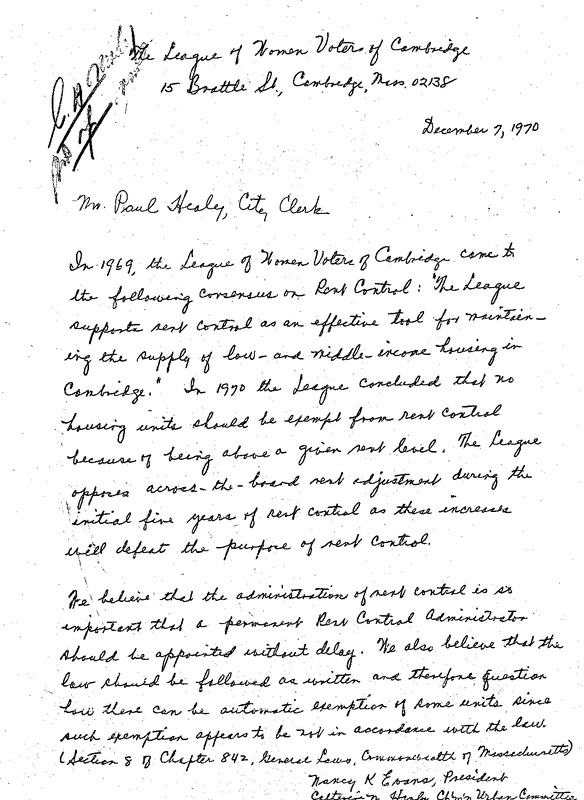 The League of Women Voters of Cambridge
15 Brattle St., Cambridge, Mass. 02138
December 7, 1970
Mr. Paul Healy, City Clerk
In 1969, the League of Women Voters of Cambridge came to
the following consensus on Rent Control: "The League
supports rent control as an effective tool for maintain-
ing the supply of low- and middle-income housing in
Cambridge." In 1970 the League concluded that no
housing units should be exempt from rent control
because of being above a given rent level. The League
opposes across-the-board rent adjustment during the
initial five years of rent control as these increases
will defeat the purpose of rent control.
We believe that the administration of rent control is so
important that a permanent Rent Control Administrator
should be appointed without delay. We also believe that the
law should be followed as written and therefore question
how there can be automatic exemption of some units since
such exemption appears to be not in accordance with the law.
(Section 8 of Chapter 842, General Laws, Commonwealth of Massachusetts)
Nancy K Evans, President
Healy Ch'm'n Urban Committee